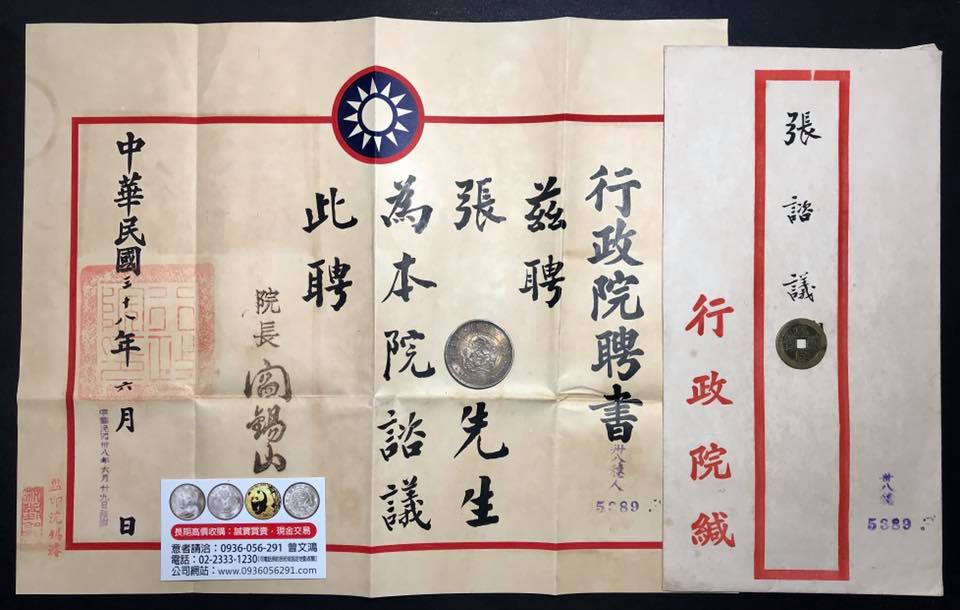 行政院聘書
茲聘
張 先生
為本院諮議
此聘
院長 閻錫山
中華民國三十八年六月 日
卅八穗人
5889
監印沈
張諮議
行政院緘
卅八穗
5889
長期高價收購：誠實買賣，現金交易
意者請洽：0936-056-291 曾文鴻
電話：02-2333-1230
公司網站：www.0936056291.com